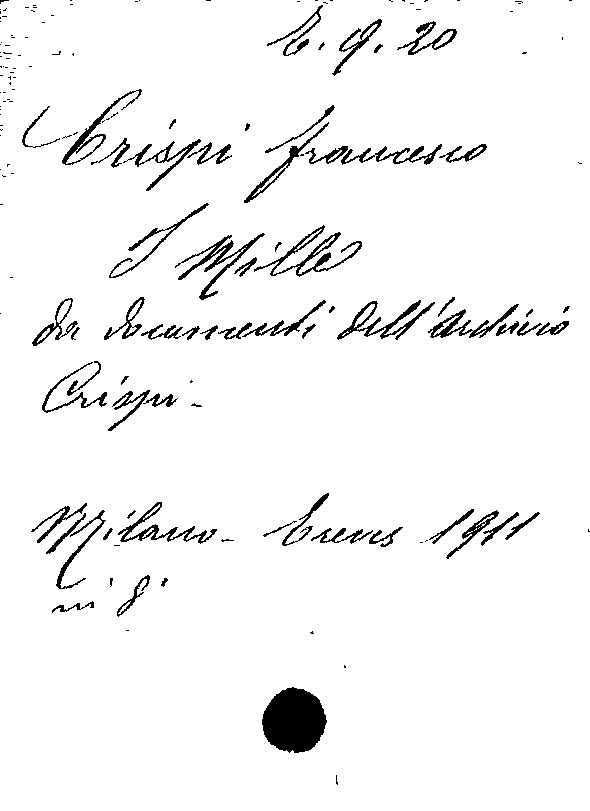 E. 9. 20
Crispi Francesco
I Mille
da documenti dell'Archivio
Crispi -
Milano - Treves 1911
in 8°